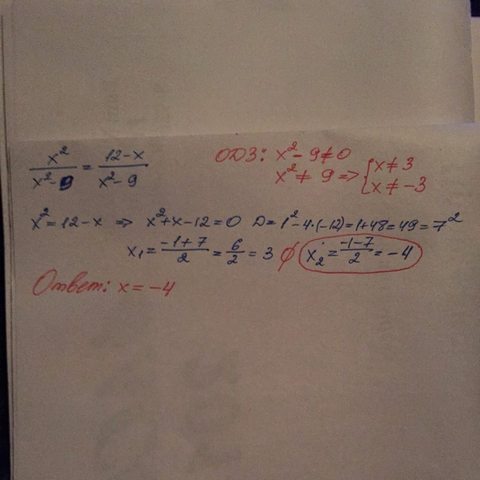 x²/(x²-9) = (12-x)/(x²-9)
ОДЗ: x²-9≠0
x²≠9 => { x≠3
x≠-3
x²=12-x => x²+x-12=0 D=1²-4·(-12)=1+48=49=7²
x₁=(-1+7)/2=6/2=3 ∅ x₂=(-1-7)/2=-4
Ответ: x=-4